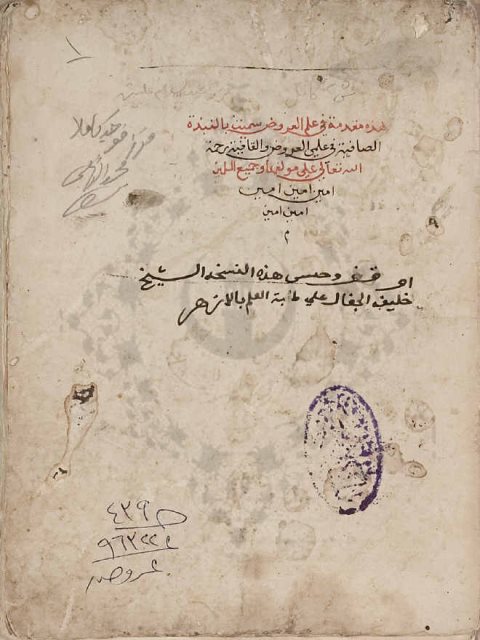 هذه مقدمة في علم العروض سميت بالنبذة
الصافية في علمي العروض والقافية رحمة
الله تعالى على مولفها وجميع المسلمين
امين امين امين
امين امين
م
اوقف وحبس هذه النسخة الشيخ
خليفه الجفال على طلبة العلم بالازهر
١
٤٣٩
٩٦٣٢٢
عروض